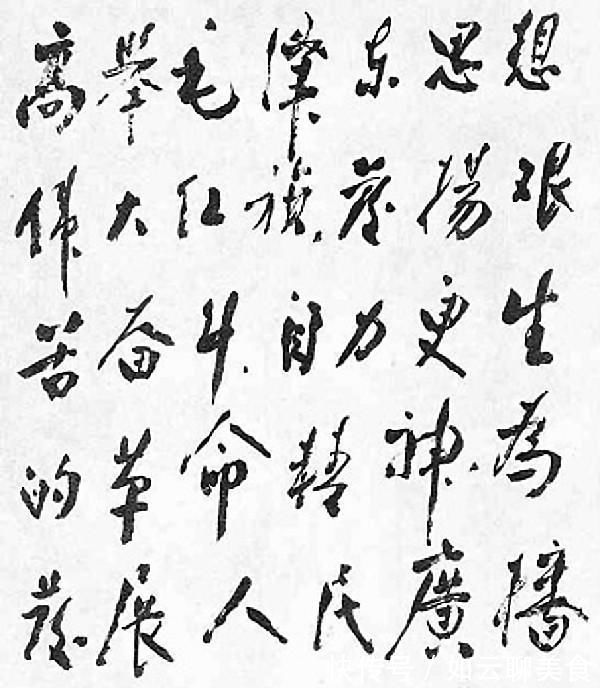 高舉毛澤东思想
伟大红旗,發揚艰
苦奋斗,自力更生
的革命精神,為
發展人民廣播
快传号 / 如云聊美食